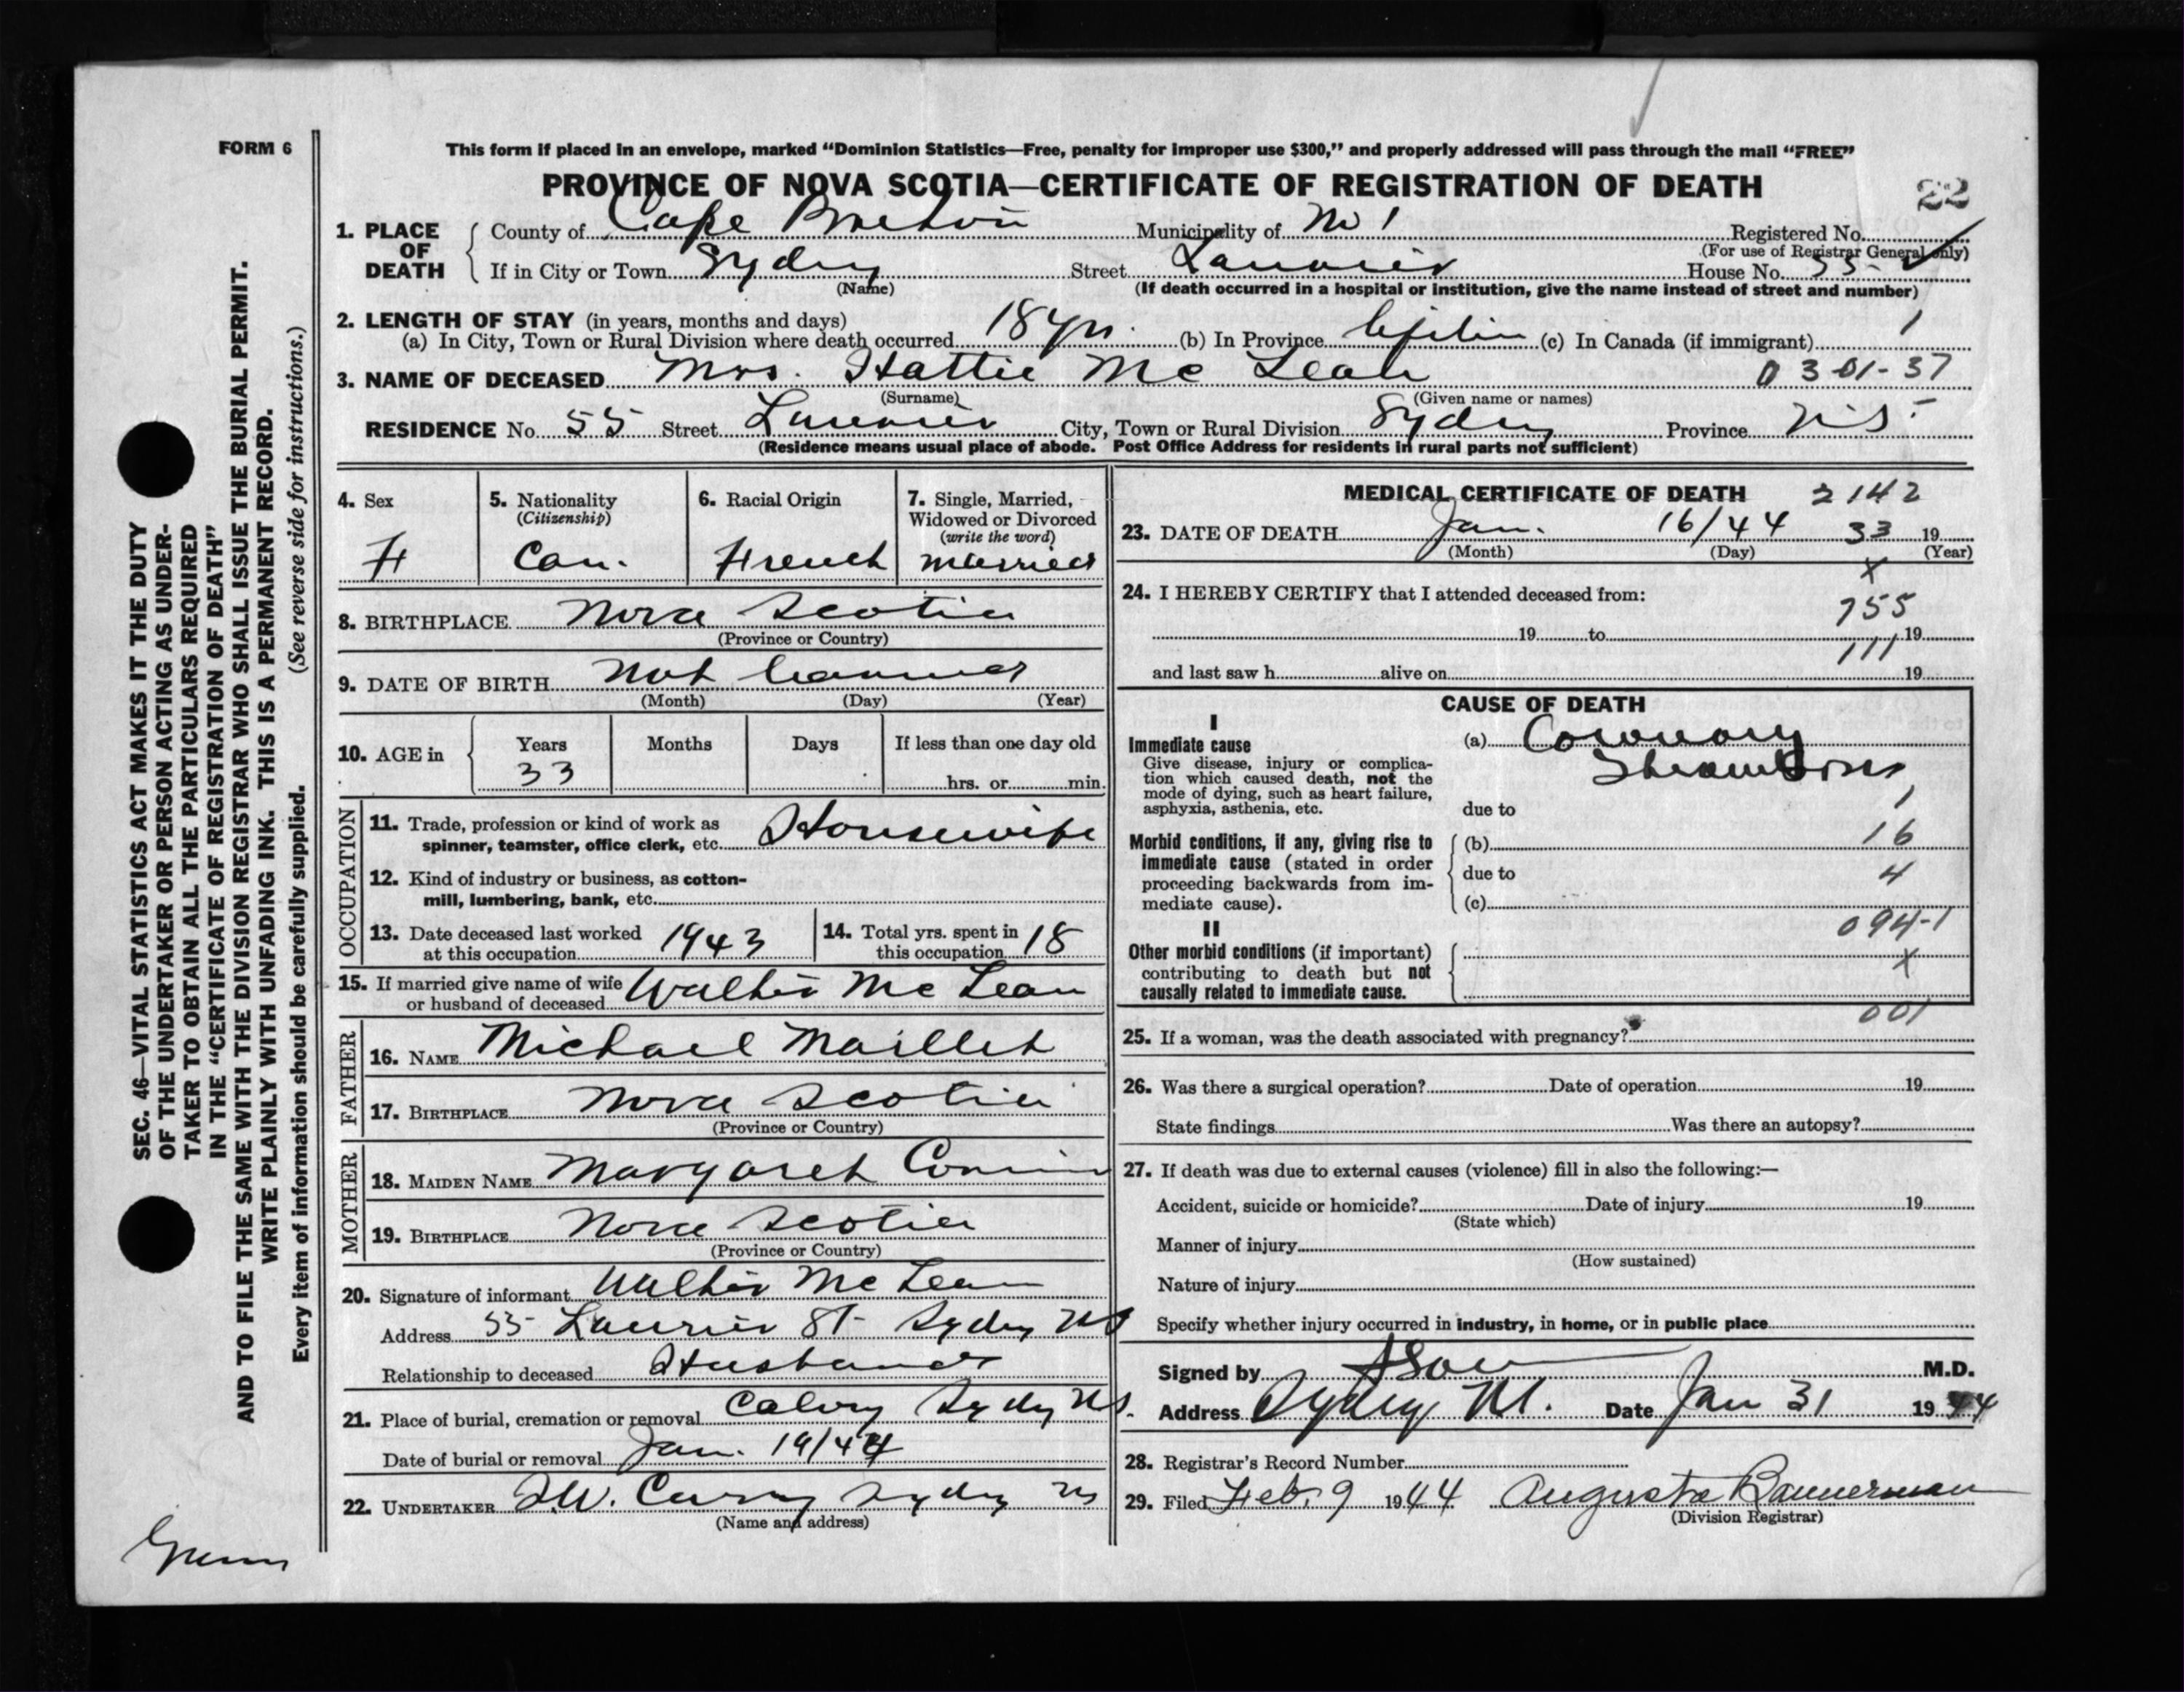 FORM 6
This form if placed in an envelope, marked “Dominion Statistics—Free, penalty for improper use $300,” and properly addressed will pass through the mail “FREE”
PROVINCE OF NOVA SCOTIA—CERTIFICATE OF REGISTRATION OF DEATH
22
1. PLACE OF DEATH
County of Cape Breton Municipality of No 1 Registered No.
(For use of Registrar General only)
If in City or Town Sydney Street Laurier House No. 55
(Name)
(If death occurred in a hospital or institution, give the name instead of street and number)
2. LENGTH OF STAY (in years, months and days)
(a) In City, Town or Rural Division where death occurred 18 yrs. (b) In Province Life time (c) In Canada (if immigrant) 1
3. NAME OF DECEASED Mrs. Hattie Mc Lean 03-01-37
(Surname) (Given name or names)
RESIDENCE No. 55 Street Laurier City, Town or Rural Division Sydney Province N.S.
(Residence means usual place of abode. Post Office Address for residents in rural parts not sufficient)
4. Sex
F
5. Nationality
(Citizenship)
Can.
6. Racial Origin
French
7. Single, Married,
Widowed or Divorced
(write the word)
married
8. BIRTHPLACE Nova Scotia
(Province or Country)
9. DATE OF BIRTH Not
(Month) (Day) (Year)
10. AGE in
Years Months Days If less than one day old
33
hrs. or min.
OCCUPATION
11. Trade, profession or kind of work as
spinner, teamster, office clerk, etc. Housewife
12. Kind of industry or business, as cotton-
mill, lumbering, bank, etc.
13. Date deceased last worked
at this occupation 1943
14. Total yrs. spent in
this occupation 18
15. If married give name of wife
or husband of deceased Walter Mc Lean
FATHER
16. NAME Michael Maillet
17. BIRTHPLACE Nova Scotia
(Province or Country)
MOTHER
18. MAIDEN NAME Margaret
19. BIRTHPLACE Nova Scotia
(Province or Country)
20. Signature of informant Walter Mc Lean
Address 55 Laurier St Sydney NS
Relationship to deceased Husband
21. Place of burial, cremation or removal Calvry Sydney NS.
Date of burial or removal Jan. 19/44
22. UNDERTAKER Sydney NS
(Name and address)
MEDICAL CERTIFICATE OF DEATH 2142
23. DATE OF DEATH Jan. 16/44 33 19
(Month) (Day) (Year)
X
24. I HEREBY CERTIFY that I attended deceased from:
755
19 to 19
111
and last saw h alive on 19
CAUSE OF DEATH
I
Immediate cause
Give disease, injury or complica-
tion which caused death, not the
mode of dying, such as heart failure,
asphyxia, asthenia, etc.
(a) Coronary
Thrombosis
due to 1
Morbid conditions, if any, giving rise to
immediate cause (stated in order
proceeding backwards from im-
mediate cause).
(b) 16
due to 4
(c)
094-1
II
Other morbid conditions (if important)
contributing to death but not
causally related to immediate cause.
X
001
25. If a woman, was the death associated with pregnancy?
26. Was there a surgical operation? Date of operation 19
State findings Was there an autopsy?
27. If death was due to external causes (violence) fill in also the following:—
Accident, suicide or homicide? Date of injury 19
(State which)
Manner of injury
(How sustained)
Nature of injury
Specify whether injury occurred in industry, in home, or in public place
Signed by M.D.
Address Sydney Date Jan 31 1944
28. Registrar's Record Number
29. Filed Feb. 9 1944 Augusta Bannerman
(Division Registrar)
SEC. 46—VITAL STATISTICS ACT MAKES IT THE DUTY
OF THE UNDERTAKER OR PERSON ACTING AS UNDER-
TAKER TO OBTAIN ALL THE PARTICULARS REQUIRED
IN THE “CERTIFICATE OF REGISTRATION OF DEATH”
AND TO FILE THE SAME WITH THE DIVISION REGISTRAR WHO SHALL ISSUE THE BURIAL PERMIT.
WRITE PLAINLY WITH UNFADING INK. THIS IS A PERMANENT RECORD.
Every item of information should be carefully supplied. (See reverse side for instructions.)